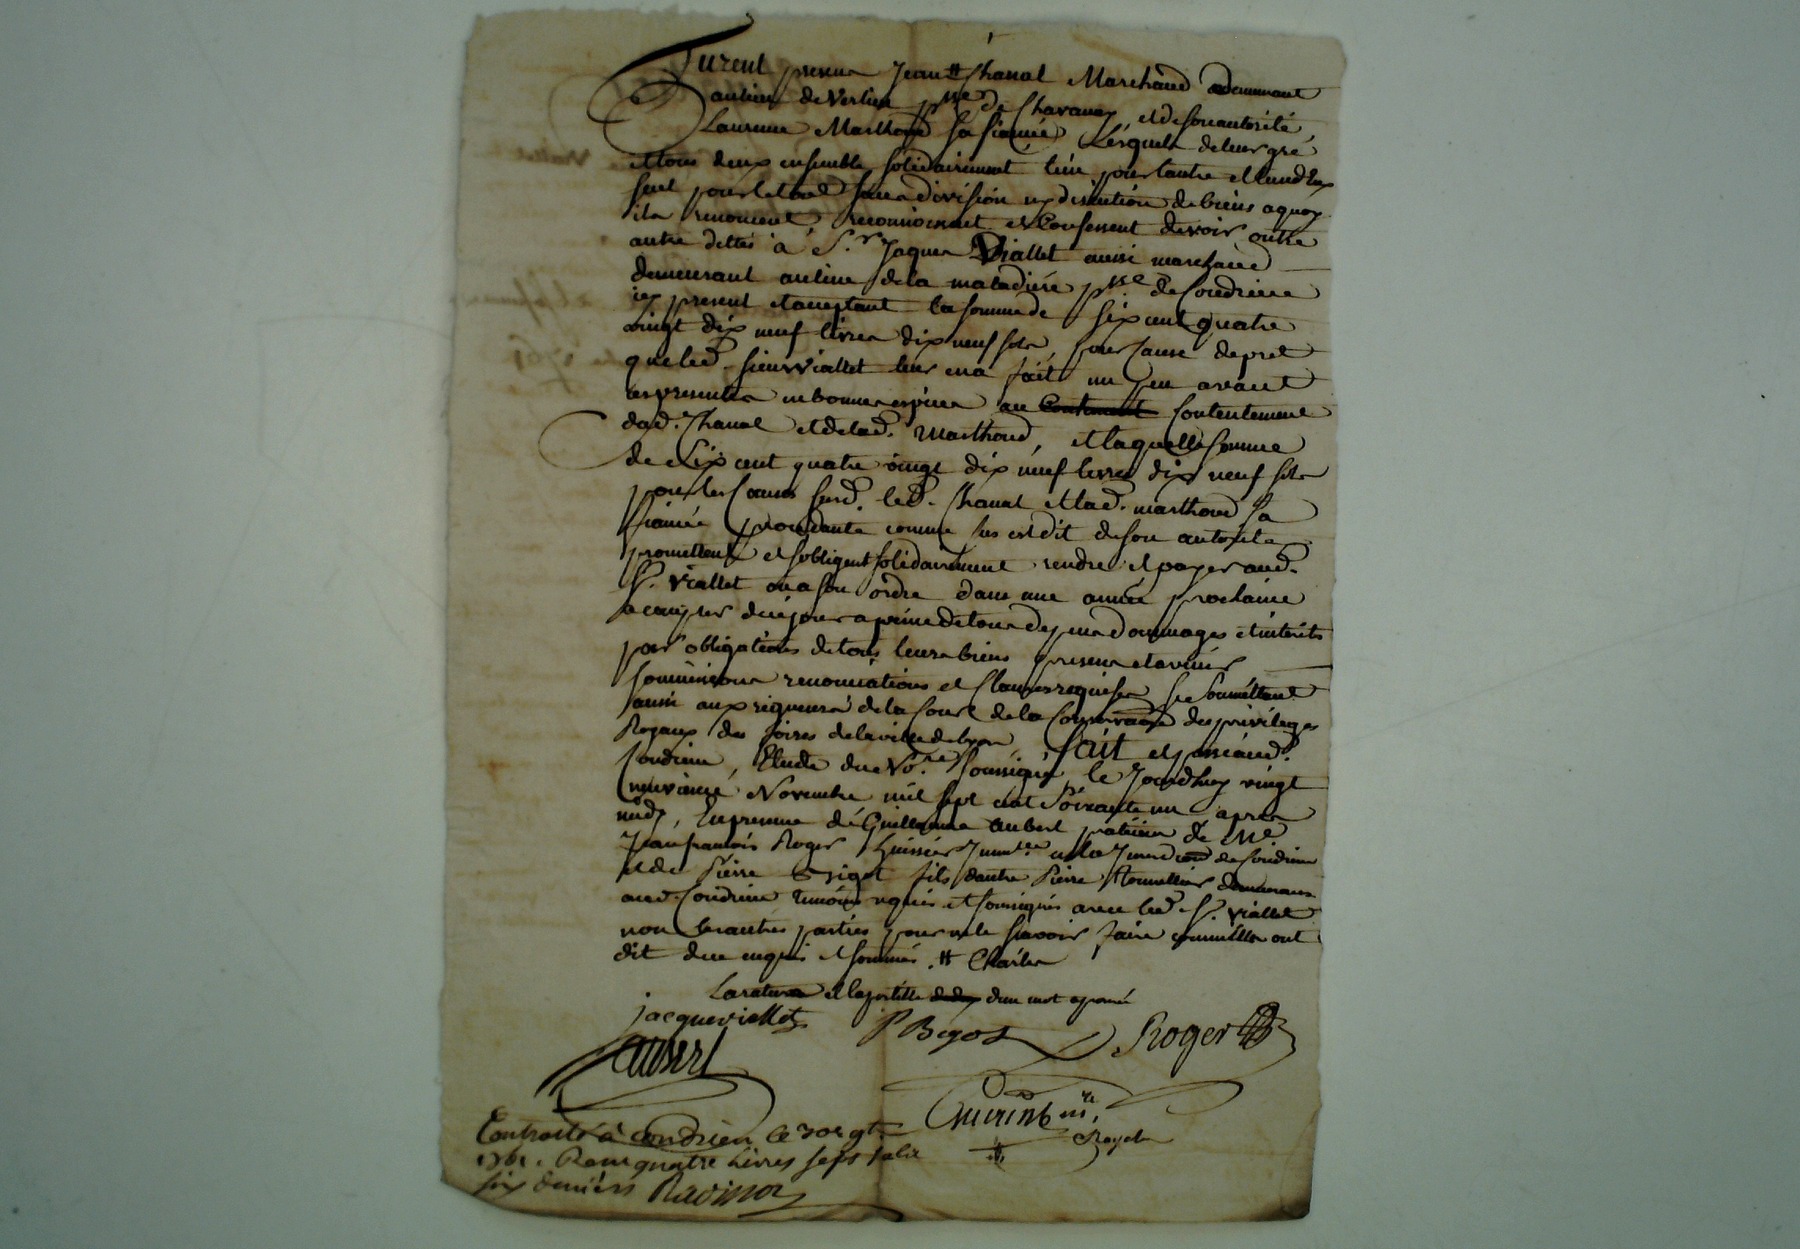 Furent presens Jean # Chanal Marchand demeurant
au lieu de Verlieu psse de Chavanay, et de son autorité,
Laurence Marthoud sa fiancée Lesquels de leur gré
et tous deux ensemble solidairement l'un pour l'autre et l'un d'eux
seul pour le tout sans division ny discution de biens a quoy
ils renoncent reconnoissent et Confessent devoir outre
autre dettes à Sr Jaques Viallet aussi marchand
demeurant au lieu de la maladiere psse de Condrieu
icy present et acceptant la somme de six cent quatre
vingt dix neuf livres dix neuf sols, pour Cause de pret
que led. sieur Viallet leur en a fait un peu avant
ces presentes en bonnes espèces au Contentement
dud. Chanal et de lad. Marthoud, et laquelle somme
de Six cent quatre vingt dix neuf livres dix neuf sols
pour les Causes susd. led. Chanal et lad. marthoud sa
fiancée procedante comme sus est dit de son autorité
promettent et s'obligent solidairement rendre et payer aud.
Sr. Viallet ou a son ordre dans une année prochaine
a compter de ce jour a peine de tous depens dommages et intérêts
par obligations de tous leurs biens presens et avenir
soumissions renonciations et Clauses requises se soumettant
aussi aux rigueurs de la Cour de la Conservation des privileges
Royaux des foires de la ville de Lyon, fait et passé aud.
Condrieu, Etude du No.re soussigné, le Jourdhuy vingt
neuvieme Novembre mil sept cent soixante un apres
midy, En presence de Guillaume Aubert praticien de Me
Jean françois Roger huissier en la Jurisdiction de Condrieu
et de Pierre fils d'autre Pierre tonnellier demeurans
aud. Condrieu temoins requis et soussignés avec led. Sr. Viallet
non les autres parties pour ne le sçavoir faire comme elles ont
dit de ce enquis et sommés. # Charles
La rature et l'apostille d'un mot aprouvé
jacque viallet P Bigot Roger
Aubert
Controllé à Condrien le 30e 9bre
1761. Recu quatre Livres sept sols
six deniers